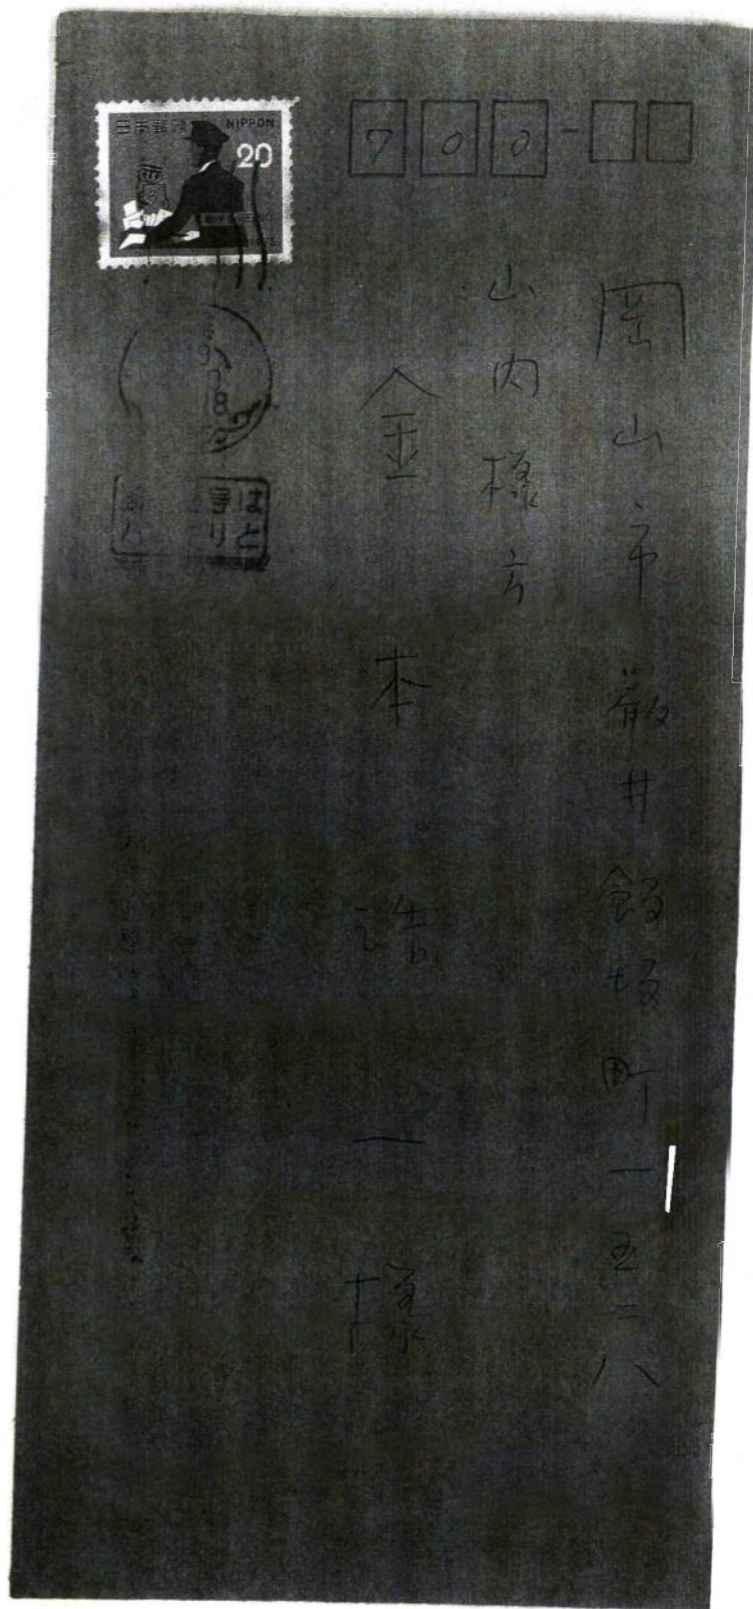 日本郵便 NIPPON
20
700-
岡山市巌井飯坂町一五二八
山内様方
金本浩一様
はと
寄り